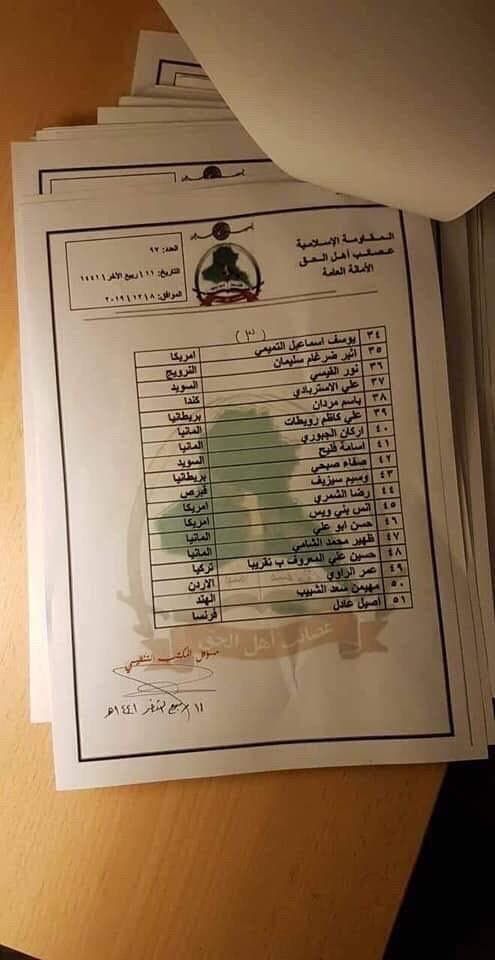 المقاومة الإسلامية
عصائب أهل الحق
الأمانة العامة
العدد: ٩٧
التاريخ: ١١ / ربيع الآخر / ١٤٤١
الموافق: ٢٠١٩/١٢/٨
(٣)
٣٤ يوسف اسماعيل التميمي امريكا
٣٥ اثير ضرغام سليمان النرويج
٣٦ نور القيسي السويد
٣٧ علي الاستربادي كندا
٣٨ باسم مردان بريطانيا
٣٩ علي كاظم رويضات المانيا
٤٠ اركان الجبوري المانيا
٤١ اسامة فليح السويد
٤٢ صفاء صبحي بريطانيا
٤٣ وسيم سيزيف قبرص
٤٤ رضا الشمري امريكا
٤٥ انس بني ويس امريكا
٤٦ حسن ابو علي المانيا
٤٧ ظهير محمد الشامي المانيا
٤٨ حسين علي المعروف ب تقريبا تركيا
٤٩ عمر الراوي الاردن
٥٠ مهيمن سعد الشبيب الهند
٥١ اصيل عادل فرنسا
عصائب أهل الحق
مسؤول المكتب التنظيمي
١١ ربيع ١٤٤١هـ